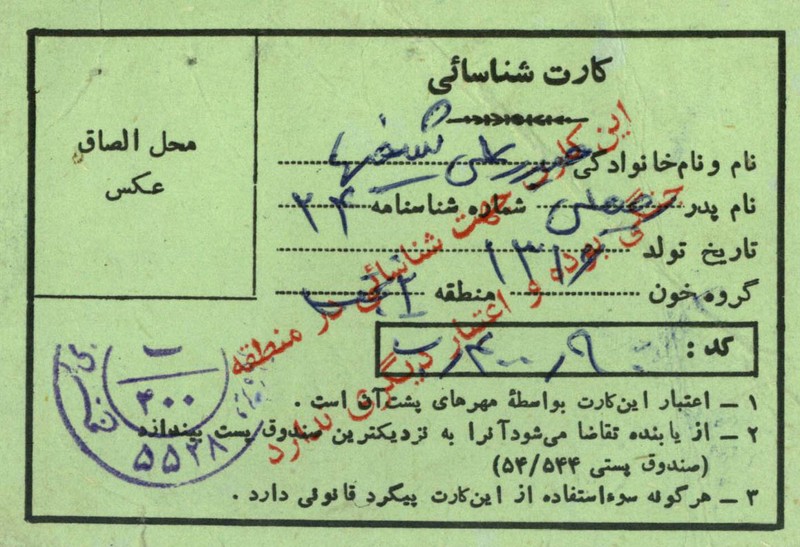 کارت شناسائی
محل الصاق
عکس
نام و نام‌خانوادگی
نام پدر شماره شناسنامه ۲۴
تاریخ تولد
گروه خون منطقه
کد :
۱ ـ اعتبار این‌کارت بواسطهٔ مهرهای پشت‌آن است .
۲ ـ از یابنده تقاضا می‌شود آنرا به نزدیکترین صندوق پست بیندازد
(صندوق پستی ۵۴/۵۴۴)
۳ ـ هرگونه سوءاستفاده از این‌کارت پیگرد قانونی دارد .
این کارت جهت شناسائی در منطقه
جنگی بوده و اعتبار دیگری ندارد
ب
۴۰۰
۵۵۲۸